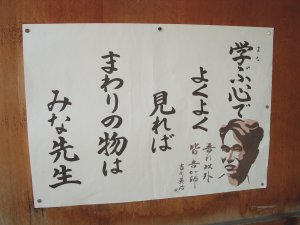 学ぶ心で
まな
よくよく
見れば
まわりの物は
みな先生
吾れ以外
皆吾が師
吉川英治